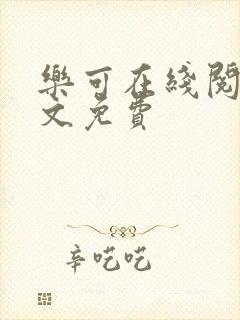 樂可在綫閱
文免費
辛吃吃